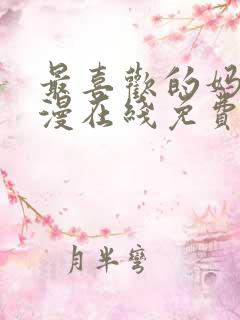 最喜歡的妈
漫在綫免費
月半彎